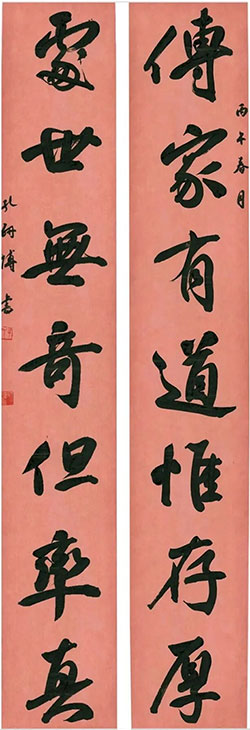 傳家有道惟存厚
丙午春月
處世無奇但率真
孔
書